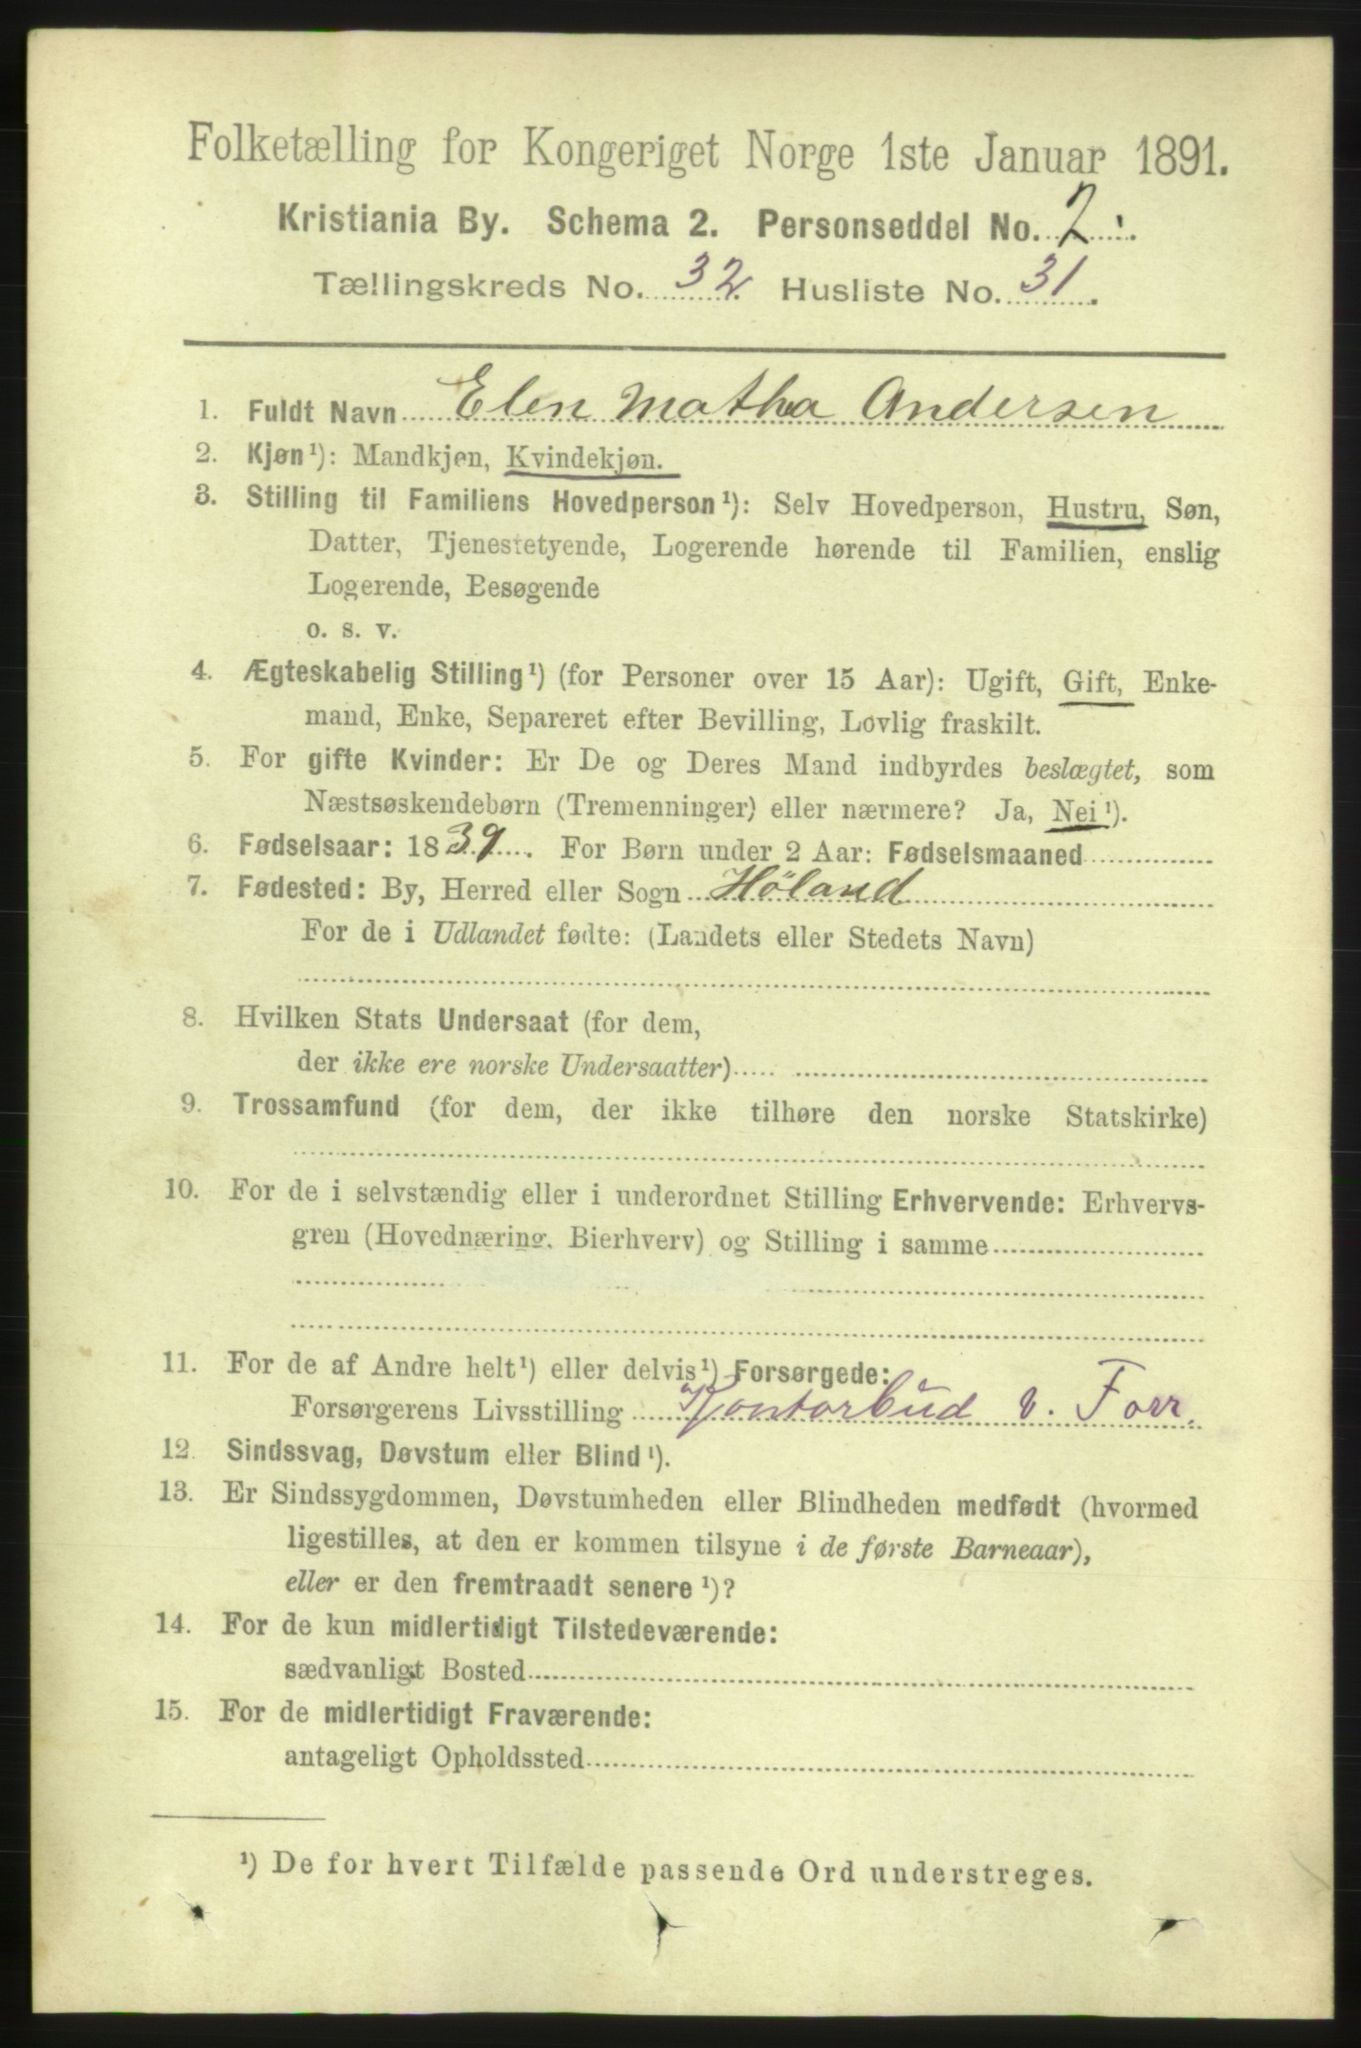 Folketælling for Kongeriget Norge 1ste Januar 1891.
Kristiania By. Schema 2. Personseddel No. 2.
Tællingskreds No. 32. Husliste No. 31.
1. Fuldt Navn Elen Mathea Andersen
2. Kjøn¹): Mandkjøn, Kvindekjøn.
3. Stilling til Familiens Hovedperson¹): Selv Hovedperson, Hustru, Søn,
Datter, Tjenestetyende, Logerende hørende til Familien, enslig
Logerende, Besøgende
o. s. v.
4. Ægteskabelig Stilling¹) (for Personer over 15 Aar): Ugift, Gift, Enke-
mand, Enke, Separeret efter Bevilling, Lovlig fraskilt.
5. For gifte Kvinder: Er De og Deres Mand indbyrdes beslægtet, som
Næstsøskendebørn (Tremenninger) eller nærmere? Ja, Nei¹).
6. Fødselsaar: 1839. For Børn under 2 Aar: Fødselsmaaned
7. Fødested: By, Herred eller Sogn Höland
For de i Udlandet fødte: (Landets eller Stedets Navn)
8. Hvilken Stats Undersaat (for dem,
der ikke ere norske Undersaatter)
9. Trossamfund (for dem, der ikke tilhøre den norske Statskirke)
10. For de i selvstændig eller i underordnet Stilling Erhvervende: Erhvervs-
gren (Hovednæring, Bierhverv) og Stilling i samme
11. For de af Andre helt¹) eller delvis¹) Forsørgede:
Forsørgerens Livsstilling Kontorbud v. Forr.
12. Sindssvag, Døvstum eller Blind¹).
13. Er Sindssygdommen, Døvstumheden eller Blindheden medfødt (hvormed
ligestilles, at den er kommen tilsyne i de første Barneaar),
eller er den fremtraadt senere¹)?
14. For de kun midlertidigt Tilstedeværende:
sædvanligt Bosted
15. For de midlertidigt Fraværende:
antageligt Opholdssted
¹) De for hvert Tilfælde passende Ord understreges.